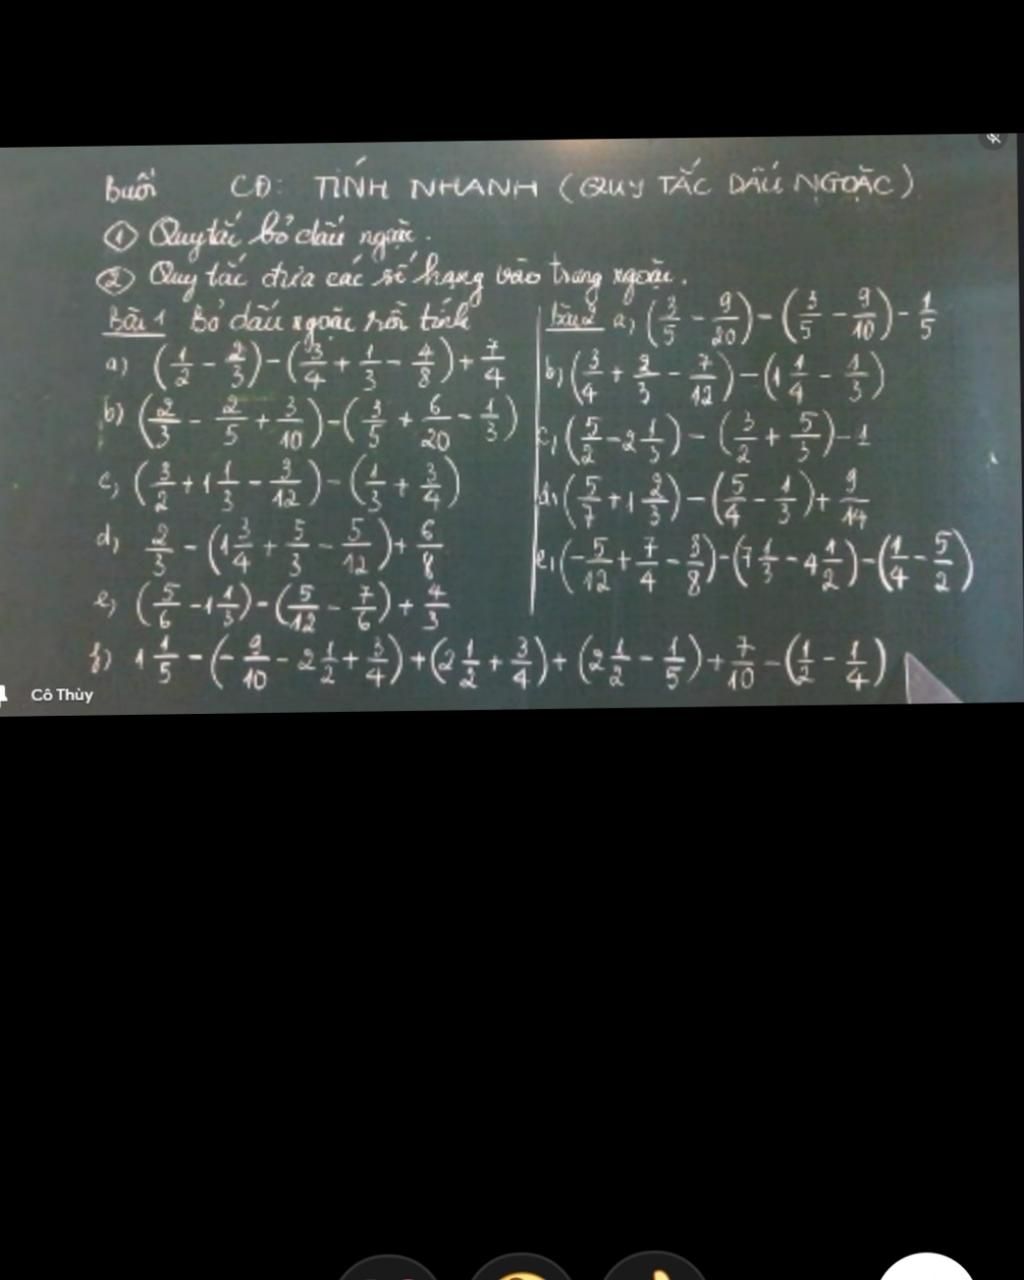 Buổi CĐ: TÍNH NHANH (QUY TẮC DẤU NGOẶC)
① Quy tắc bỏ dấu ngoặc.
② Quy tắc đưa các số hạng vào trong ngoặc.
Bài 1 Bỏ dấu ngoặc rồi tính
a) (1/2 - 2/3) - (3/4 + 1/3 - 4/8) + 7/4
b) (2/3 - 2/5 + 3/10) - (3/5 + 6/20 - 1/3)
c, (3/2 + 1 1/3 - 3/12) - (1/3 + 3/4)
d, 2/3 - (1 3/4 + 5/3 - 5/12) + 6/8
e, (5/6 - 1 1/3) - (5/12 - 7/6) + 4/3
f) 1 1/5 - (-9/10 - 2 1/2 + 3/4) + (2 1/2 + 3/4) + (2 1/2 - 1/5) + 7/10 - (1/2 - 1/4)
Bài 2 a, (3/5 - 9/20) - (3/5 - 9/10) - 1/5
b, (3/4 + 2/3 - 7/12) - (1 1/4 - 1/3)
c, (5/2 - 2 1/3) - (3/2 + 5/3) - 1
d, (5/7 + 1 2/3) - (5/4 - 1/3) + 9/14
e, (-5/12 + 7/4 - 3/8) - (7 1/3 - 4 1/2) - (1/4 - 5/2)
Cô Thủy